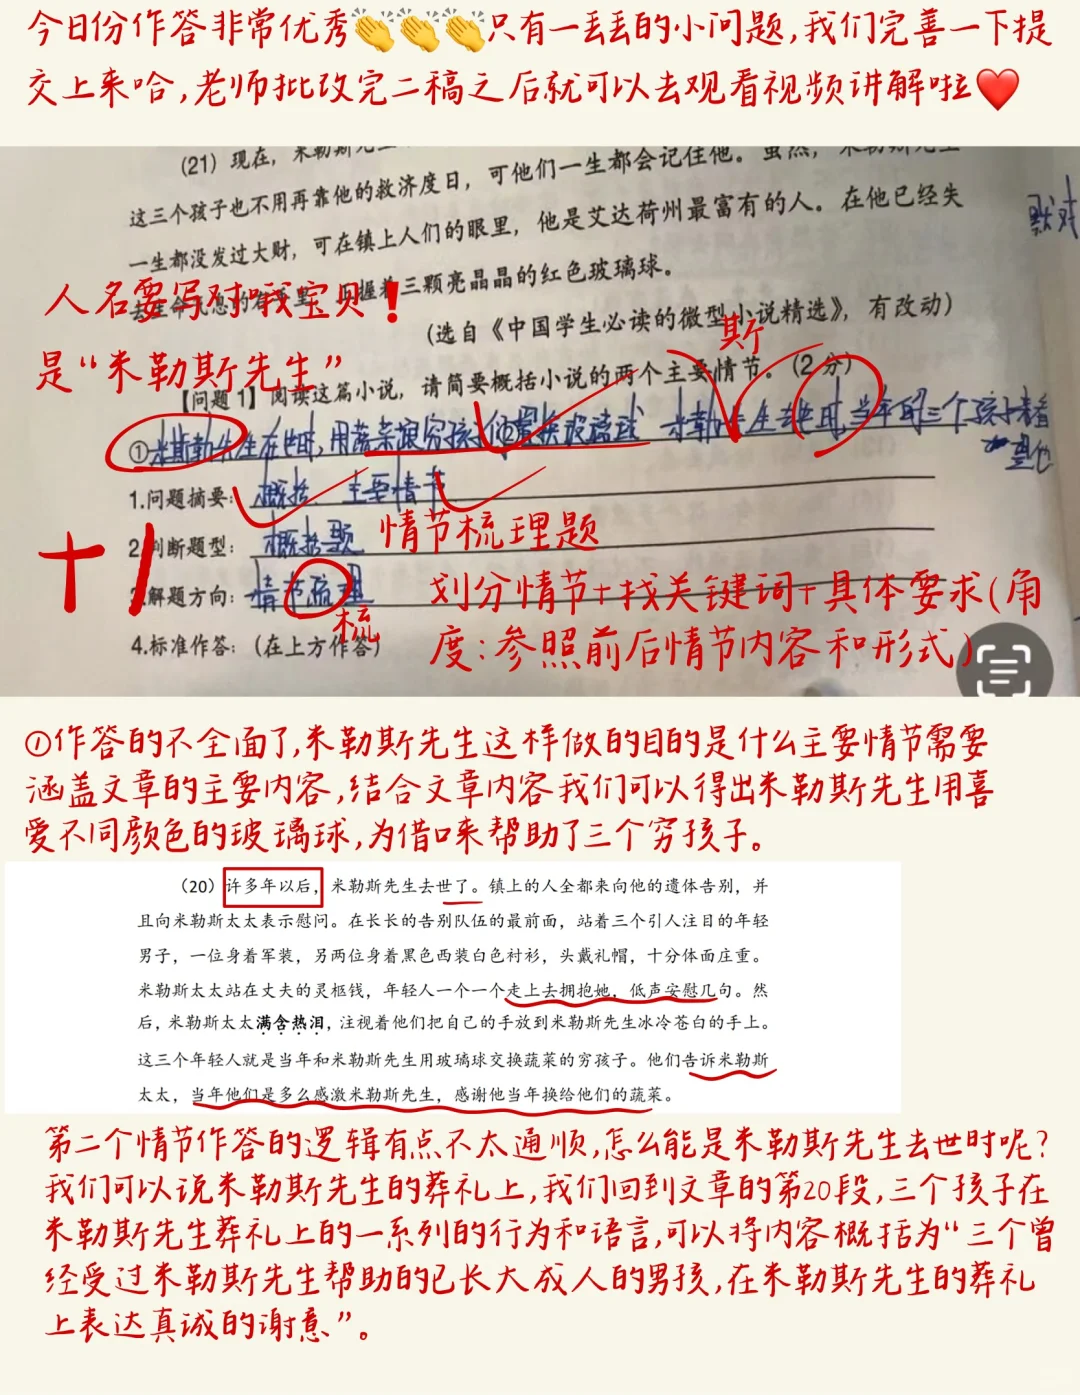 今日份作答非常优秀👏👏👏只有一丢丢的小问题,我们完善一下提
交上来哈,老师批改完二稿之后就可以去观看视频讲解啦❤️
(21)现在,米勒斯先生
这三个孩子也不用再靠他的救济度日,可他们一生都会记住他。虽然,米勒斯先生
一生都没发过大财,可在镇上人们的眼里,他是艾达荷州最富有的人。在他已经失
去生命气息的 握着三颗亮晶晶的红色玻璃球。
默对
人名要写对哦宝贝!
(选自《中国学生必读的微型小说精选》,有改动)
是“米勒斯先生”
斯
【问题1】阅读这篇小说,请简要概括小说的两个主要情节。(2分)
①米斯勒先生在世时,用蔬菜跟穷孩子们置换玻璃球 ②米勒 先生去世时,当年的三个孩子来看
望他
1.问题摘要:概括 主要情节
2.判断题型:概括题
情节梳理题
3.解题方向:情节疏理
梳
划分情节+找关键词+具体要求(角
度:参照前后情节内容和形式)
4.标准作答:(在上方作答)
+1
①作答的不全面了,米勒斯先生这样做的目的是什么主要情节需要
涵盖文章的主要内容,结合文章内容我们可以得出米勒斯先生用喜
爱不同颜色的玻璃球,为借口来帮助了三个穷孩子。
(20)许多年以后,米勒斯先生去世了。镇上的人全都来向他的遗体告别,并
且向米勒斯太太表示慰问。在长长的告别队伍的最前面,站着三个引人注目的年轻
男子,一位身着军装,另两位身着黑色西装白色衬衫,头戴礼帽,十分体面庄重。
米勒斯太太站在丈夫的灵柩钱,年轻人一个一个走上去拥抱她,低声安慰几句。然
后,米勒斯太太满含热泪,注视着他们把自己的手放到米勒斯先生冰冷苍白的手上。
这三个年轻人就是当年和米勒斯先生用玻璃球交换蔬菜的穷孩子。他们告诉米勒斯
太太,当年他们是多么感激米勒斯先生,感谢他当年换给他们的蔬菜。
第二个情节作答的逻辑有点不太通顺,怎么能是米勒斯先生去世时呢?
我们可以说米勒斯先生的葬礼上,我们回到文章的第20段,三个孩子在
米勒斯先生葬礼上的一系列的行为和语言,可以将内容概括为“三个曾
经受过米勒斯先生帮助的已长大成人的男孩,在米勒斯先生的葬礼
上表达真诚的谢意”。